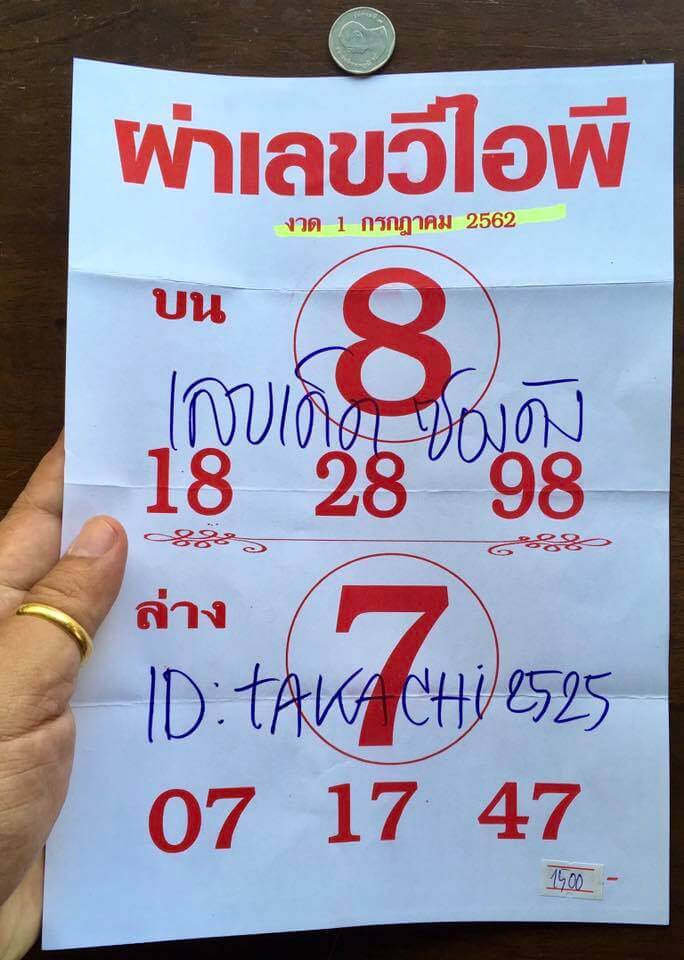 ผ่าเลขวีไอพี
งวด 1 กรกฎาคม 2562
บน
8
เลขเด็ด ซองดัง
18 28 98
ล่าง
7
ID: tAKACHi 2525
07 17 47
1500 -